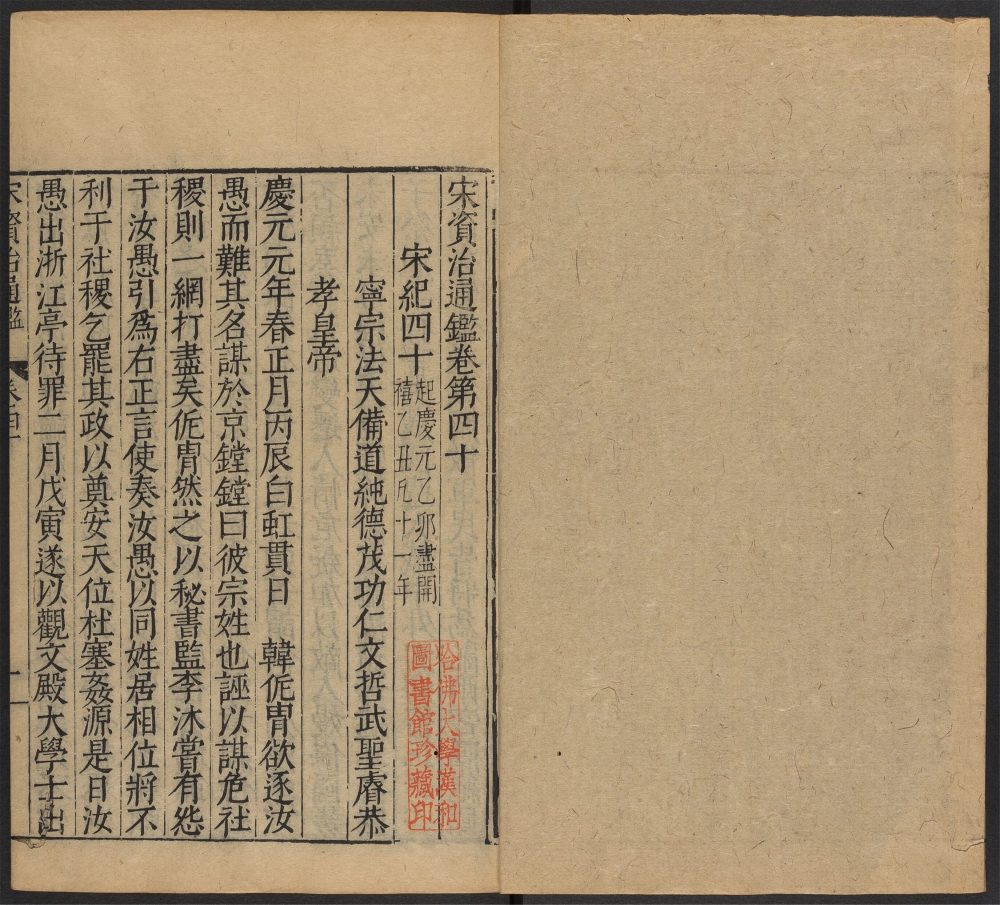 宋資治通鑑卷第四十
宋紀四十
起慶元乙卯盡開
禧乙丑凡十一年
寧宗法天備道純德茂功仁文哲武聖睿恭
孝皇帝
慶元元年春正月丙辰白虹貫日　韓侂胄欲逐汝
愚而難其名謀於京鏜鏜曰彼宗姓也誣以謀危社
稷則一網打盡矣侂胄然之以秘書監李沐嘗有怨
于汝愚引爲右正言使奏汝愚以同姓居相位將不
利于社稷乞罷其政以奠安天位杜塞姦源是日汝
愚出浙江亭待罪二月戊寅遂以觀文殿大學士出
宋資治通鑑
卷四
一
哈佛大學漢和
圖書館珍藏印